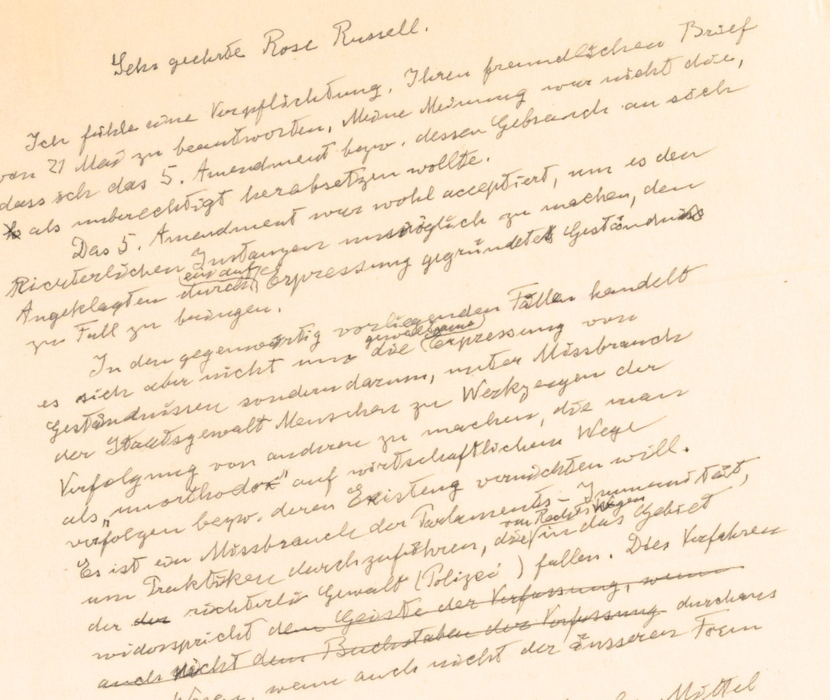 Sehr geehrte Rose Russell.
Ich fühle eine Verpflichtung, Ihren freundlichen Brief
von 21 Mai zu beantworten. Meine Meinung war nicht die,
dass ich das 5. Amendment bezw. dessen Gebrauch an sich
als unberechtigt herabsetzen wollte.
Das 5. Amendment war wohl acceptiert, um es den
Richterlichen Instanzen unmöglich zu machen, den
Angeklagten durch Erpressung gegründetes Geständnis
ein auf
zu Fall zu bringen.
In den gegenwärtig vorliegenden Fällen handelt
es sich aber nicht um die Erpressung von
gewaltsame
Geständnissen sondern darum, unter Missbrauch
der Staatsgewalt Menschen zu Werkzeugen der
Verfolgung von anderen zu machen, die man
als „unorthodox" auf wirtschaftlichem Wege
verfolgen bezw. deren Existenz vernichten will.
Es ist ein Missbrauch der Parlaments-Immunität,
um Praktiken durchzuführen, die in das Gebiet
von Rechts Wegen
der der richterli Gewalt (Polizei ) fallen. Dies Verfahren
widerspricht dem Geiste der Verfassung, wenn
auch nicht dem Buchstaben der Verfassung durchaus
wenn auch nicht der äusseren Form
Mittel